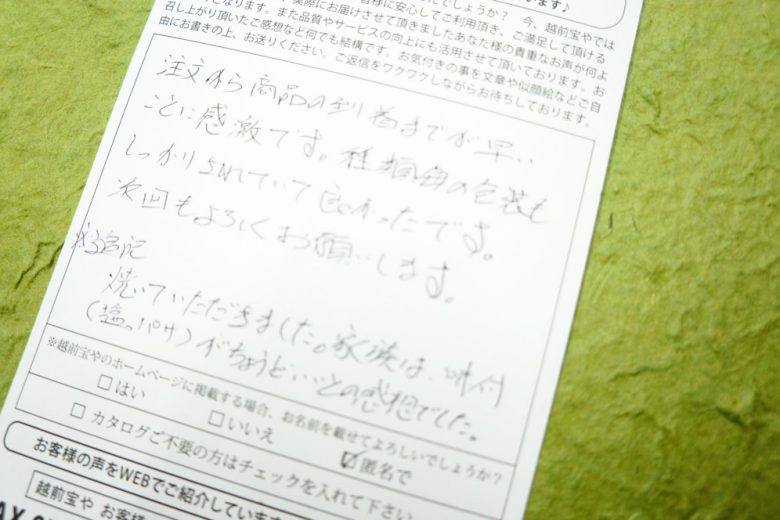 今、越前宝やでは
実際にお届けさせて頂きましたあなた様の貴重なお声が何よ
召し上がり頂いたご感想など何でも結構です。お気付きの事を文章や似顔絵などご自
由にお書きの上、お送りください。ご返信をワクワクしながらお待ちしております。
注文から商品の到着までが早い
ことに感激です。種類毎の包装も
しっかりされていて良かったです。
次回もよろしくお願いします。
追記
焼いていただきました。家族は、味付
(塩っパサ)がちょうどいいとの感想でした。
※越前宝やのホームページに掲載する場合、お名前を載せてよろしいでしょうか?
□はい □いいえ ☑匿名で
□ カタログご不要の方はチェックを入れて下さい
お客様の声をWEBでご紹介しています
越前宝や お客様